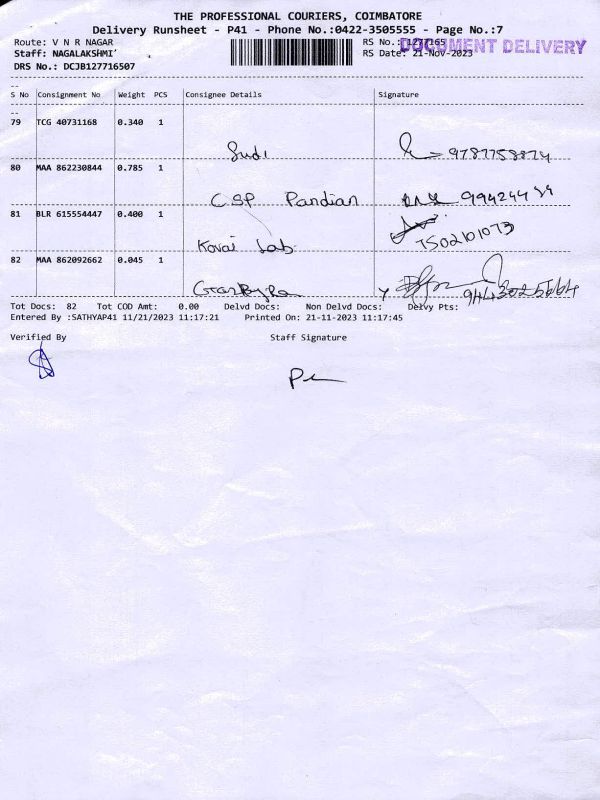 THE PROFESSIONAL COURIERS, COIMBATORE
Delivery Runsheet - P41 - Phone No.:0422-3505555 - Page No.:7
Route: V N R NAGAR
RS No.:1277165
DOCUMENT DELIVERY
Staff: NAGALAKSHMI'
RS Date: 21-Nov-2023
DRS No.: DCJB127716507
S No Consignment No Weight PCS Consignee Details Signature
79 TCG 40731168 0.340 1
Sudi 9787758874
80 MAA 862230844 0.785 1
CSP Pandian
81 BLR 615554447 0.400 1
Kovai Lab 7502101073
82 MAA 862092662 0.045 1
Tot Docs: 82 Tot COD Amt: 0.00 Delvd Docs: Non Delvd Docs: Delvy Pts:
Entered By :SATHYAP41 11/21/2023 11:17:21 Printed On: 21-11-2023 11:17:45
Verified By Staff Signature